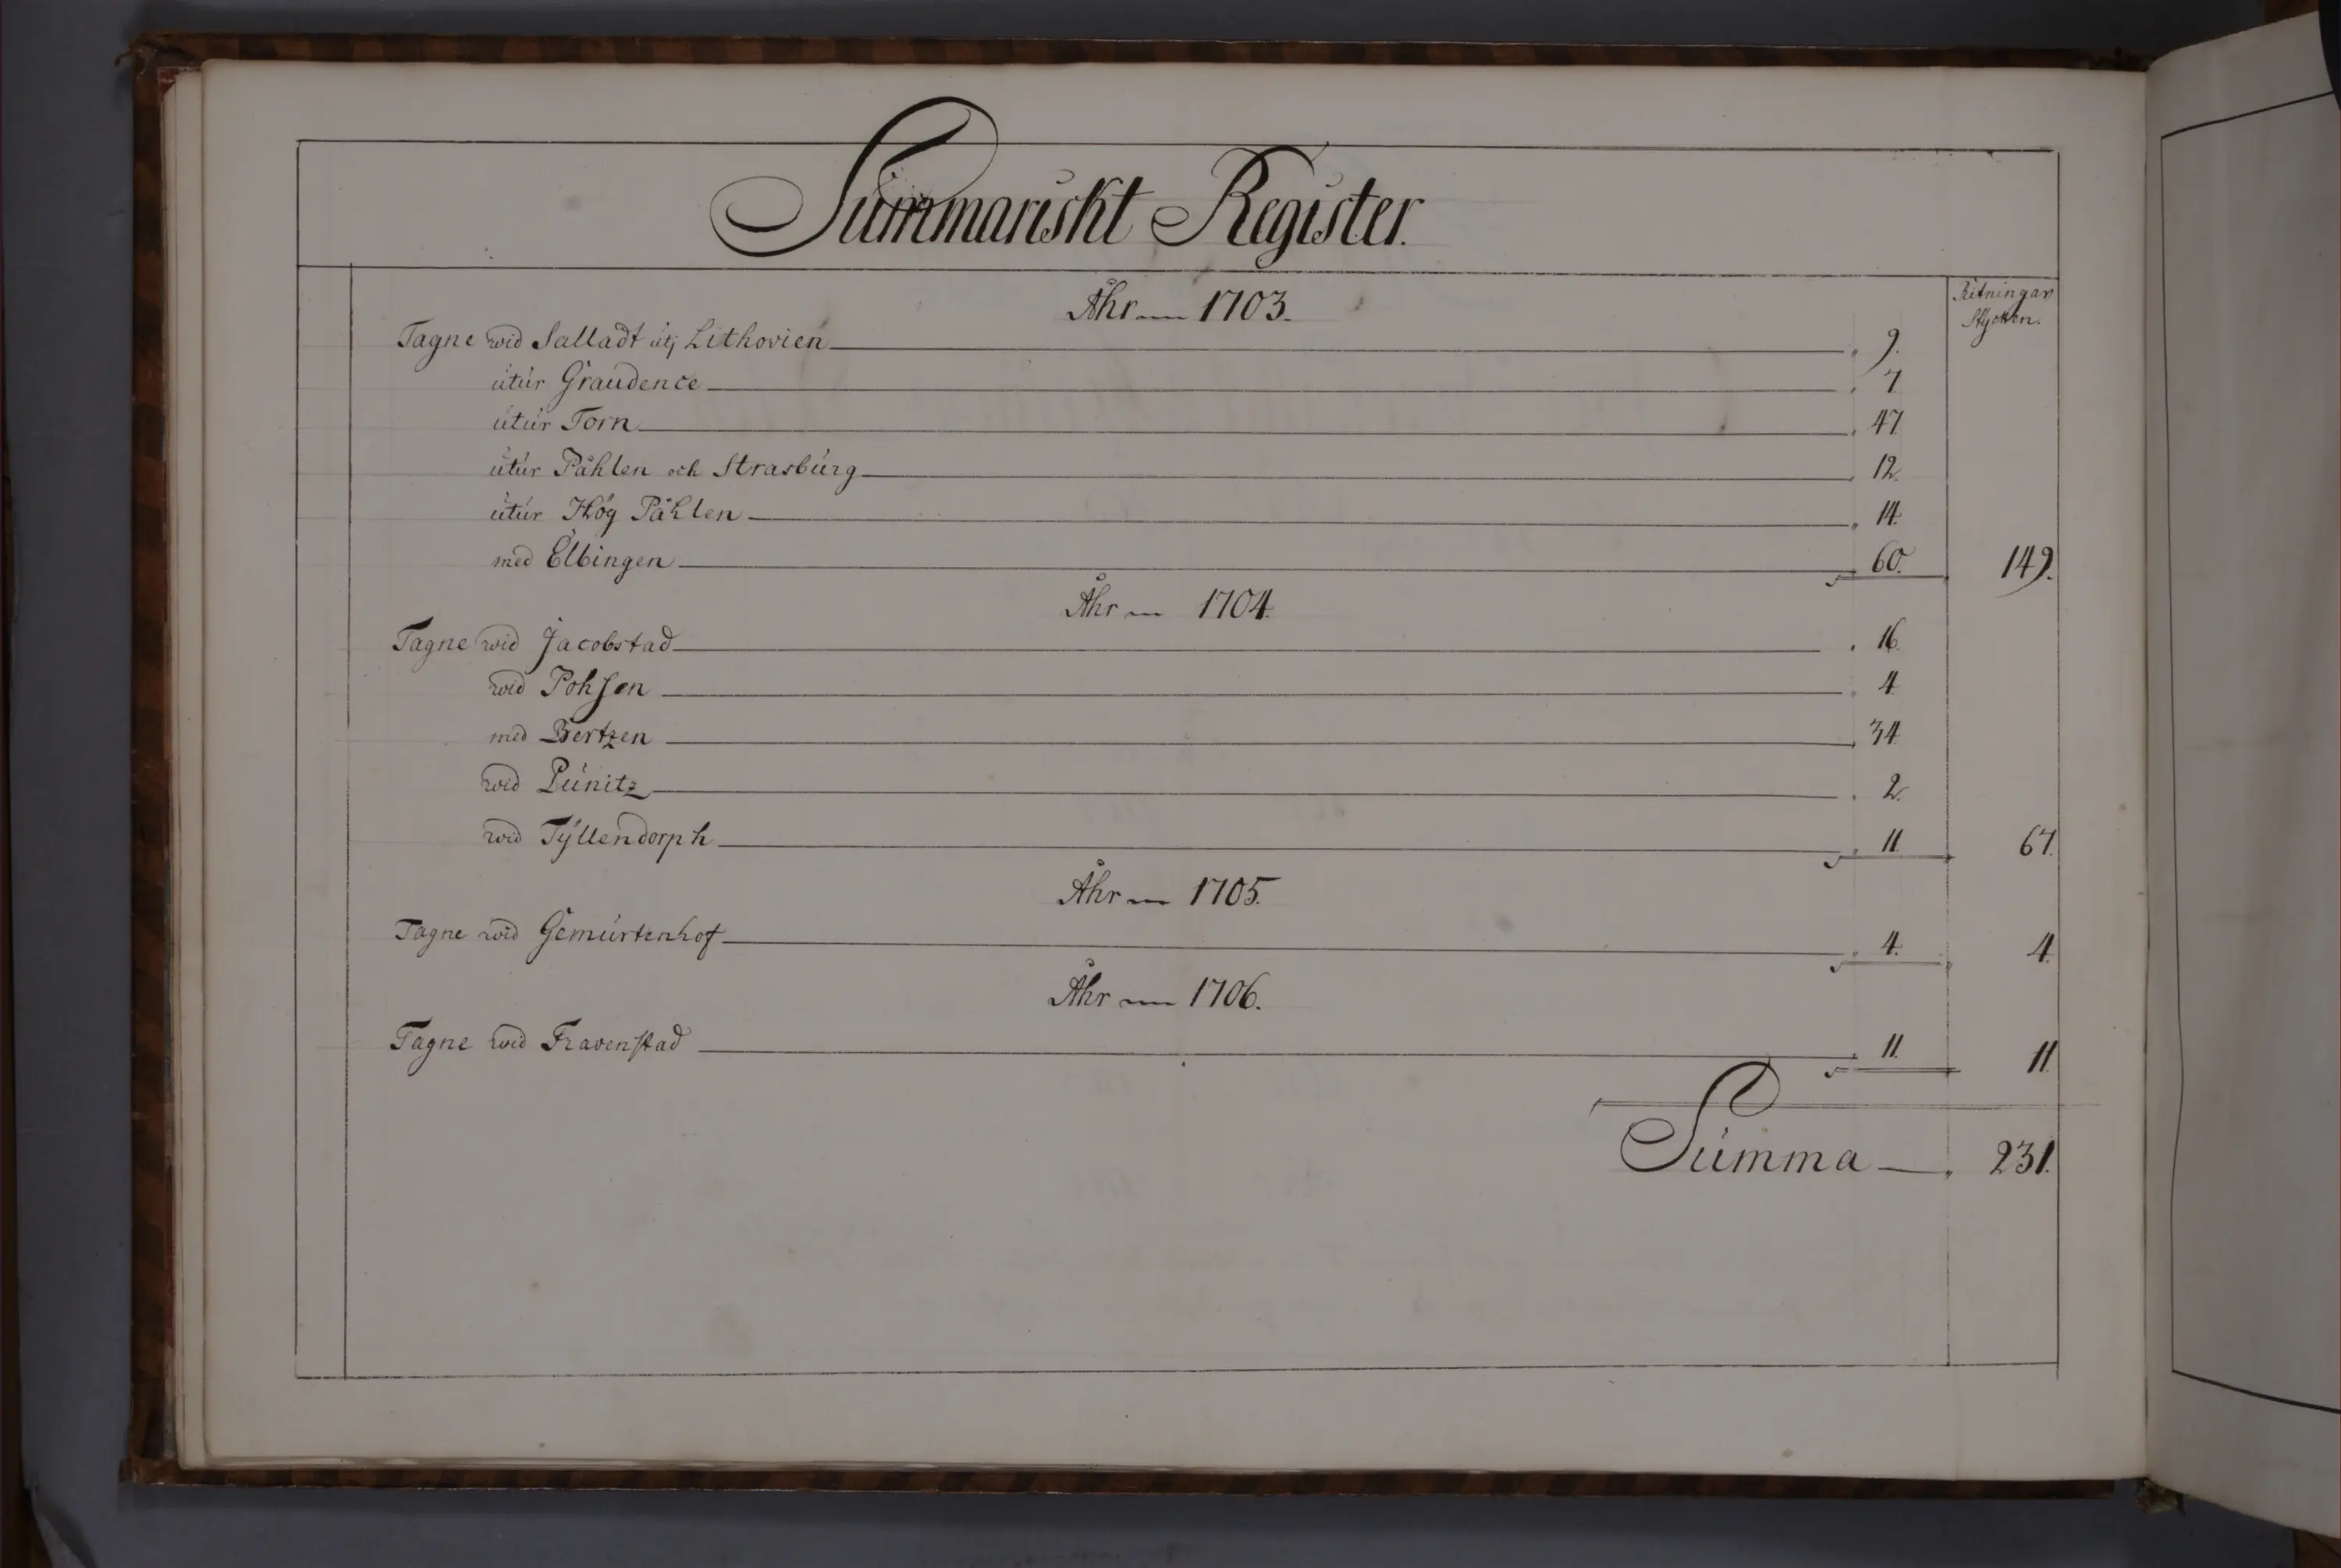 Summariskt Register.
Åhr 1703.
Ritningar
Stycken.
Tagne wid Salladt utj Lithovien 9.
utur Graudence 7
utur Torn 47
utur Påhlen och Strasburg 12.
utur Hög Påhlen 14.
med Elbingen 60. 149.
Åhr 1704.
Tagne wid Jacobstad 16
wid Pohsen 4
med Bertzen 34
wid Punitz 2.
wid Tÿllendorph 11. 67.
Åhr 1705.
Tagne wid Gemürtenhof 4. 4.
Åhr 1706.
Tagne wid Fravenstad 11. 11.
Summa 231.